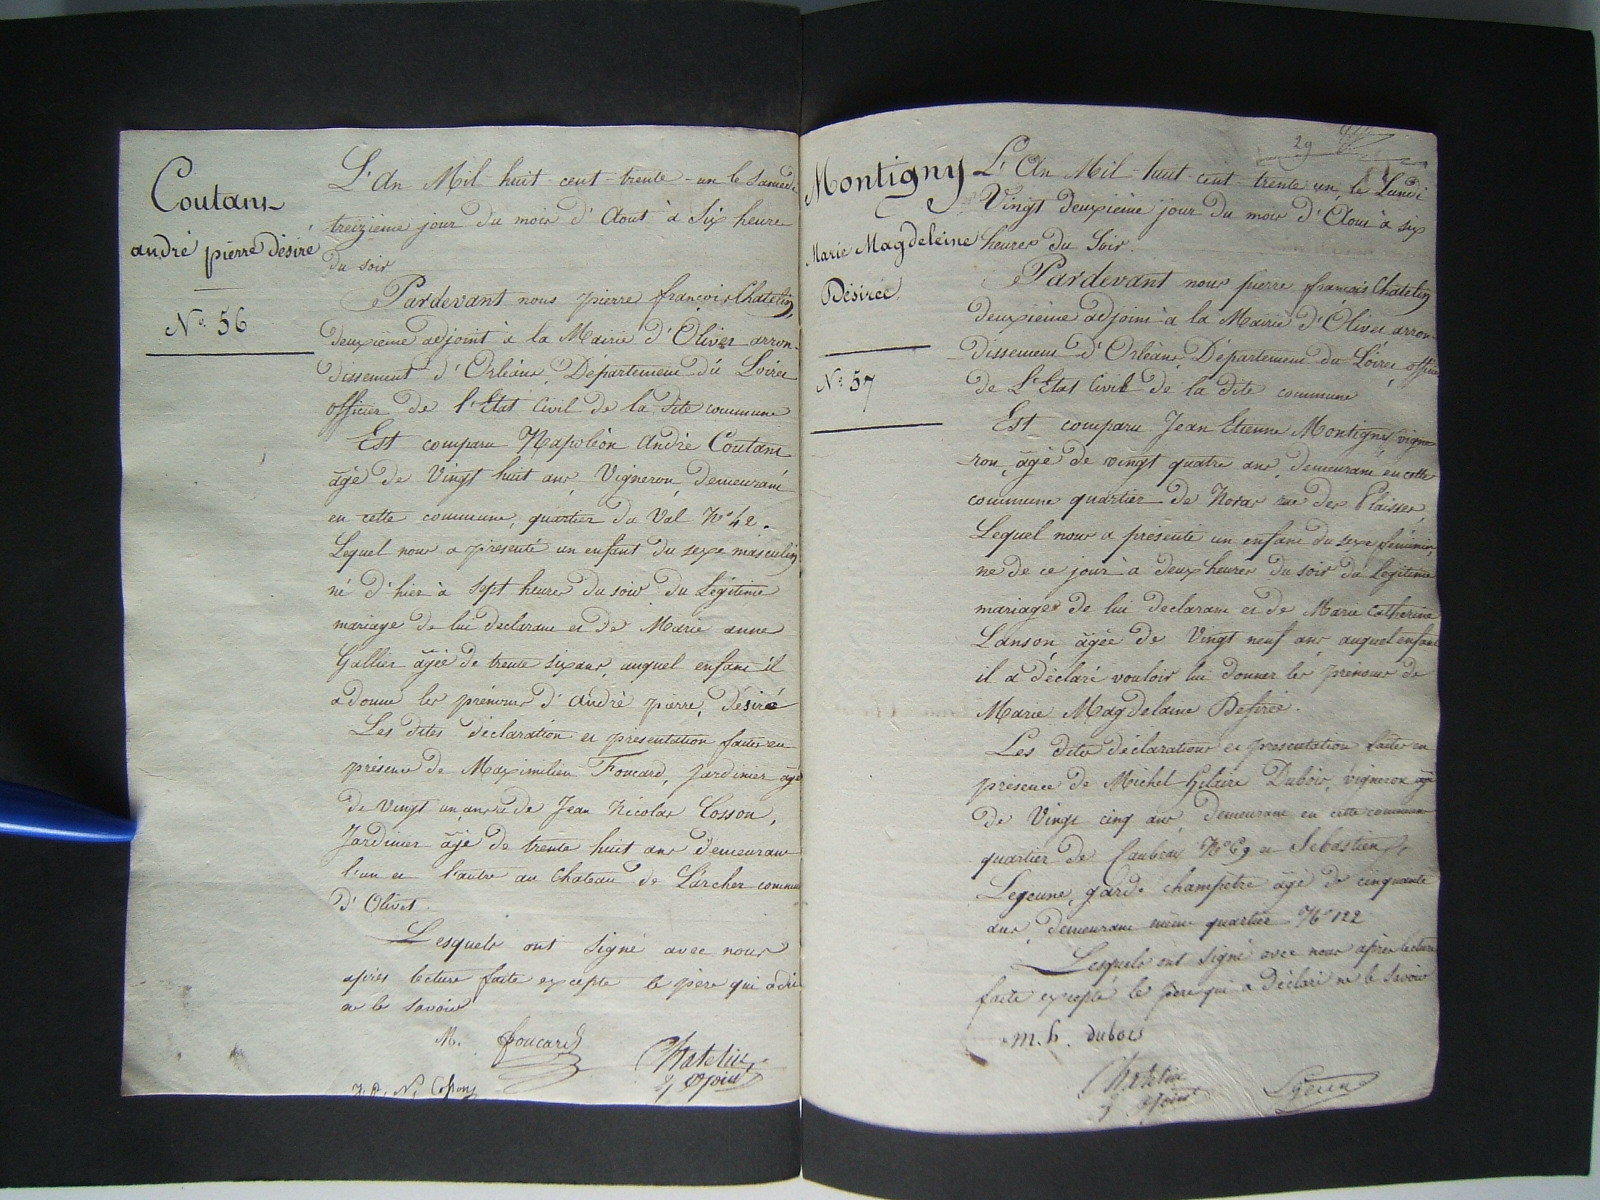 Coutans
andré pierre désiré
No. 56
L'An Mil huit cent trente un le Samedi
treizième jour du mois d'Aout à Six heure
du soir
Pardevant nous pierre françois Chatelin,
deuxième adjoint à la Mairie d'Olivet arron-
dissement d'Orléans, Département du Loiret
officier de l'Etat Civil de la dite commune
Est comparu Napoléon André Coutans
âgé de Vingt huit ans, Vigneron, demeurant
en cette commune, quartier du Val No. 42.
Lequel nous a présenté un enfant du sexe masculin
né d'hier à sept heures du soir du Légitime
mariage de lui déclarant et de Marie anne
Gallier âgée de trente six ans, auquel enfant il
a donné les prénoms d'André pierre, désiré
Les dites déclaration et présentation faites en
présence de Maximilien Foucard, jardinier âgé
de vingt un ans et de Jean Nicolas Cosson,
Jardinier âgé de trente huit ans demeurant
l'un et l'autre au Chateau de Larcher commune
d'Olivet.
Lesquels ont signé avec nous
après lecture faite excepté le père qui a dit
ne le savoir
M. foucard
Chatelin
2 adjoint
N. Cosson
29
Montigny
Marie Magdeleine
Désirée
No. 57
L'An Mil huit cent trente un, le Lundi
Vingt deuxième jour du mois d'Aout à six
heures du Soir.
Pardevant nous pierre françois Chatelin
deuxième adjoint à la Mairie d'Olivet arron-
dissement d'Orléans, Département du Loiret, officier
de L'Etat Civil de la dite commune
Est comparu Jean Etienne Montigny, vigne-
ron, âgé de vingt quatre ans, demeurant en cette
commune quartier de Noras rue des Plaisses,
Lequel nous a présenté un enfant du sexe féminin,
né de ce jour à deux heures du soir du Légitime
mariage de lui déclarant et de Marie Catherine
Lanson, âgée de Vingt neuf ans, auquel enfant
il a déclaré vouloir lui donner les prénoms de
Marie Magdelaine Desirée.
Les dites déclarations et présentation faites en
présence de Michel hilaire Dubois, vigneron âgé
de Vingt cinq ans, demeurant en cette commune
quartier de Caubray No. 69 et Sebastien
Lejeune, garde champetre âgé de cinquante
ans, demeurant même quartier No. 122
Lesquels ont signé avec nous après lecture
faite excepté le père qui a déclaré ne le savoir
m. h. dubois
Chatelin
2 adjoint
Lejeune